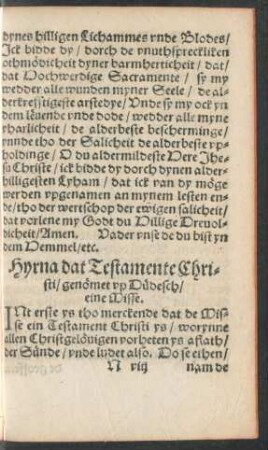 dynes hilligen Lichammes vnde Blodes/
Jck bidde dy/ dorch de vnuthspreckliken
othmödicheit dyner barmherticheit/ dat/
dat Hochwerdige Sacramente/ sy my
wedder alle wunden myner Seele/ de al-
derkrefftigeste arstedye/ Vnde sy my ock yn
dem leuende vnde dode/ wedder alle myne
vharlicheit/ de alderbeste bescherminge/
vnnde tho der Salicheit de alderbeste vp-
holdinge/ O du aldermildeste Here Jhe-
su Christe/ ick bidde dy dorch dynen alder-
hilligesten Lyham/ dat ick van dy möge
werden vpgenamen an mynem lesten en-
de/ tho der wertschop der ewigen salicheit/
dat vorlene my Godt du Hillige Dreuol-
dicheit/ Amen. Vader vnse de du bist yn
dem Hemmel/ etc.
Hyrna dat Testamente Chri-
sti/ genömet vp Düdesch/
eine Misse.
INt erste ys tho merckende dat de Mis-
se ein Testament Christi ys/ worynne
allen Christgelöuigen vorheten ys aflath/
der Sünde/ vnde ludet also. Do se ethen/
N iiij nam de